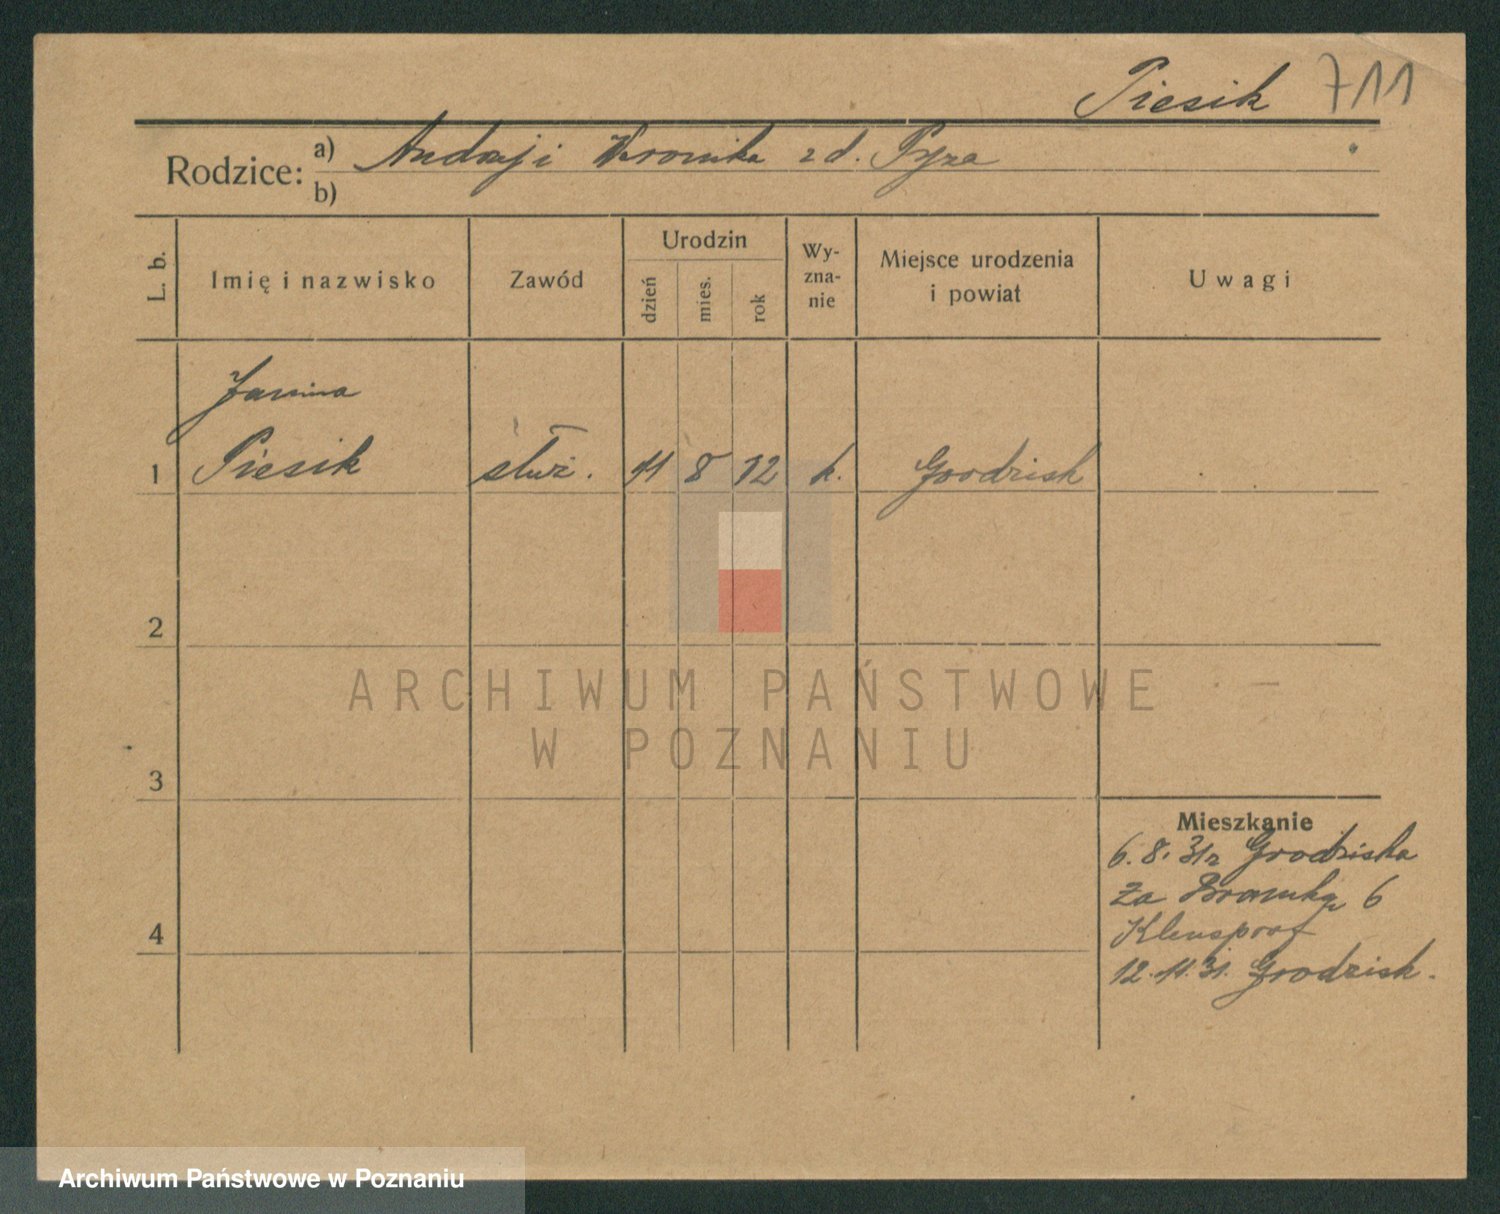 Piesik 711
Rodzice: a) Andrzej i Weronika z d. Pyza
b)
L. b.
Imię i nazwisko
Zawód
Urodzin
dzień
mies.
rok
Wy-
zna-
nie
Miejsce urodzenia
i powiat
Uwagi
Janina
1 Piesik służ. 11 8 12 k. Grodzisk
2
3
4
Mieszkanie
6.8.31r Grodziska
Za Bramką 6
12.11.31. Grodzisk.
ARCHIWUM PAŃSTWOWE
W POZNANIU
Archiwum Państwowe w Poznaniu